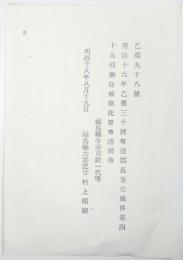 乙第九十八號
明治十六年乙第三十號布達區長委任條件第四
十九項刪除候條此旨布達候事
明治十八年八月十九日
福島縣令赤司欽一代理
福島縣大書記官村上楯朝